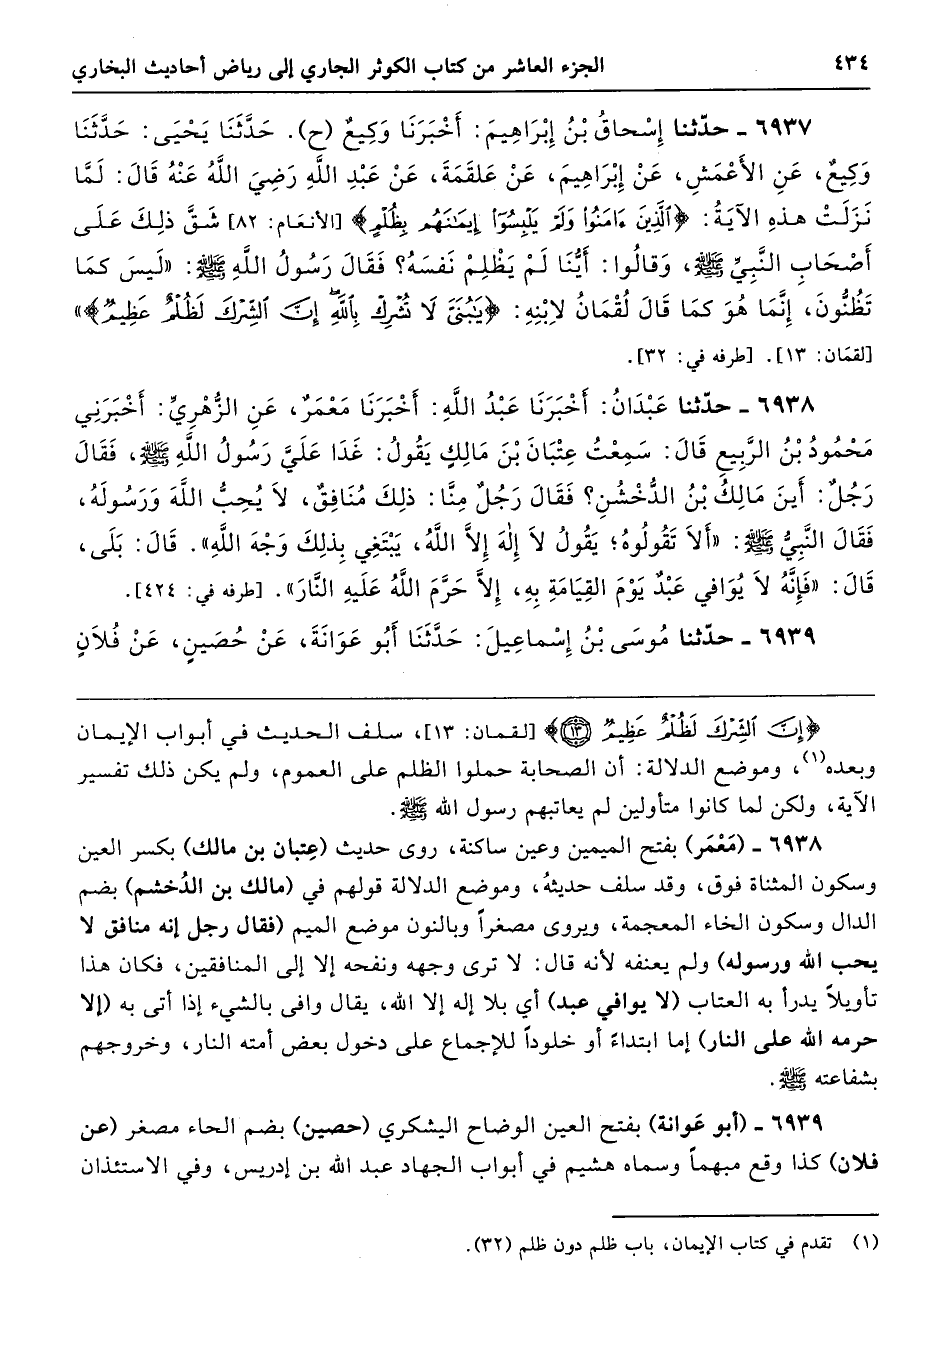 ٤٣٤ الجزء العاشر من كتاب الكوثر الجاري إلى رياض أحاديث البخاري
٦٩٣٧ ـ حدّثنا إِسْحاقُ بْنُ إِبْرَاهِيمَ: أَخْبَرَنَا وَكِيعٌ (ح). حَدَّثَنَا يَحْيَى: حَدَّثَنَا
وَكِيعٌ، عَنِ الأَعْمَشِ، عَنْ إِبْرَاهِيمَ، عَنْ عَلقَمَةَ، عَنْ عَبْدِ اللَّهِ رَضِيَ اللَّهُ عَنْهُ قَالَ: لَمَّا
نَزَلَتْ هذهِ الآيَةُ: ﴿ٱلَّذِينَ ءَامَنُواْ وَلَمْ يَلْبِسُوٓاْ إِيمَٰنَهُم بِظُلْمٍ﴾ [الأنعَام: ٨٢] شَقَّ ذلِكَ عَلَى
أَصْحَابِ النَّبِيِّ ﷺ، وَقالُوا: أَيُّنَا لَمْ يَظْلِمْ نَفْسَهُ؟ فَقَالَ رَسُولُ اللَّهِ ﷺ: «لَيسَ كمَا
تَظُنُّونَ، إِنَّمَا هُوَ كمَا قَالَ لُقْمَانُ لاِبْنِهِ: ﴿يَٰبُنَىَّ لَا تُشْرِكْ بِٱللَّهِۖ إِنَّ ٱلشِّرْكَ لَظُلْمٌ عَظِيمٌ﴾»
[لقمَان: ١٣]. [طرفه في: ٣٢].
٦٩٣٨ ـ حدّثنا عَبْدَانُ: أَخْبَرَنَا عَبْدُ اللَّهِ: أَخْبَرَنَا مَعْمَرٌ، عَنِ الزُّهْرِيِّ: أَخْبَرَنِي
مَحْمُودُ بْنُ الرَّبِيعِ قَالَ: سَمِعْتُ عِتْبَانَ بْنَ مَالِكٍ يَقُولُ: غَدَا عَلَيَّ رَسُولُ اللَّهِ ﷺ، فَقَالَ
رَجُلٌ: أَينَ مَالِكُ بْنُ الدُّخْشُنِ؟ فَقَالَ رَجُلٌ مِنَّا: ذلِكَ مُنَافِقٌ، لاَ يُحِبُّ اللَّهَ وَرَسُولَهُ،
فَقَالَ النَّبِيُّ ﷺ: «أَلاَ تَقُولُوهُ؛ يَقُولُ لاَ إِلٰهَ إِلاَّ اللَّهُ، يَبْتَغِي بِذلِكَ وَجْهَ اللَّهِ». قَالَ: بَلَى،
قَالَ: «فَإِنَّهُ لاَ يُوَافي عَبْدٌ يَوْمَ القِيَامَةِ بِهِ، إِلاَّ حَرَّمَ اللَّهُ عَلَيهِ النَّارَ». [طرفه في: ٤٢٤].
٦٩٣٩ ـ حدّثنا مُوسَى بْنُ إِسْماعِيلَ: حَدَّثَنَا أَبُو عَوَانَةَ، عَنْ حُصَينٍ، عَنْ فُلاَنٍ
﴿إِنَّ ٱلشِّرْكَ لَظُلْمٌ عَظِيمٌ ١٣﴾ [لقمان: ١٣]، سلف الحديث في أبواب الإيمان
وبعده(١)، وموضع الدلالة: أن الصحابة حملوا الظلم على العموم، ولم يكن ذلك تفسير
الآية، ولكن لما كانوا متأولين لم يعاتبهم رسول الله ﷺ.
٦٩٣٨ ـ (مَعْمَر) بفتح الميمين وعين ساكنة، روى حديث (عِتبان بن مالك) بكسر العين
وسكون المثناة فوق، وقد سلف حديثهُ، وموضع الدلالة قولهم في (مالك بن الدُخشم) بضم
الدال وسكون الخاء المعجمة، ويروى مصغراً وبالنون موضع الميم (فقال رجل إنه منافق لا
يحب الله ورسوله) ولم يعنفه لأنه قال: لا ترى وجهه ونفحه إلا إلى المنافقين، فكان هذا
تأويلاً يدرأ به العتاب (لا يوافي عبد) أي بلا إله إلا الله، يقال وافى بالشيء إذا أتى به (إلا
حرمه الله على النار) إما ابتداءً أو خلوداً للإجماع على دخول بعض أمته النار، وخروجهم
بشفاعته ﷺ.
٦٩٣٩ ـ (أبو عَوانة) بفتح العين الوضاح اليشكري (حصين) بضم الحاء مصغر (عن
فلان) كذا وقع مبهماً وسماه هشيم في أبواب الجهاد عبد الله بن إدريس، وفي الاستئذان
(١) تقدم في كتاب الإيمان، باب ظلم دون ظلم (٣٢).